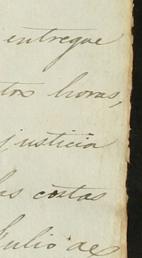 entregue
tos horas,
justicia
las costas
Julio de